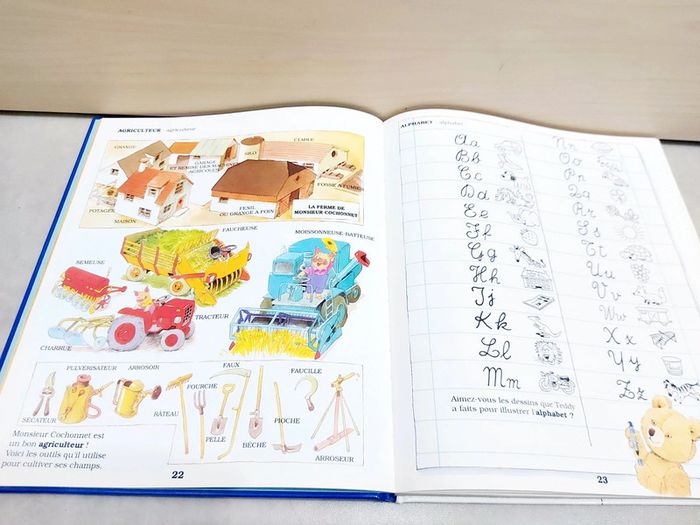 AGRICULTEUR - agriculteur
GRANGE
SILO
ÉTABLE
GARAGE
ET REMISE DES MACHINES
AGRICOLES
FOSSE À FUMIER
POTAGER
FENIL
OU GRANGE À FOIN
LA FERME DE
MONSIEUR COCHONNET
MAISON
FAUCHEUSE
MOISSONNEUSE-BATTEUSE
SEMEUSE
TRACTEUR
CHARRUE
PULVÉRISATEUR
ARROSOIR
FAUX
FAUCILLE
FOURCHE
SÉCATEUR
RÂTEAU
PIOCHE
PELLE
BÊCHE
ARROSEUR
Monsieur Cochonnet est
un bon agriculteur !
Voici les outils qu'il utilise
pour cultiver ses champs.
22
ALPHABET - alphabet
Aa
Bb
Cc
Dd
Ee
Ff
Gg
Hh
Ij
Kk
Ll
Mm
Nn
Oo
Pp
Qq
Rr
Ss
Tt
Uu
Vv
Ww
Xx
Yy
Zz
Aimez-vous les dessins que Teddy
a faits pour illustrer l'alphabet ?
23